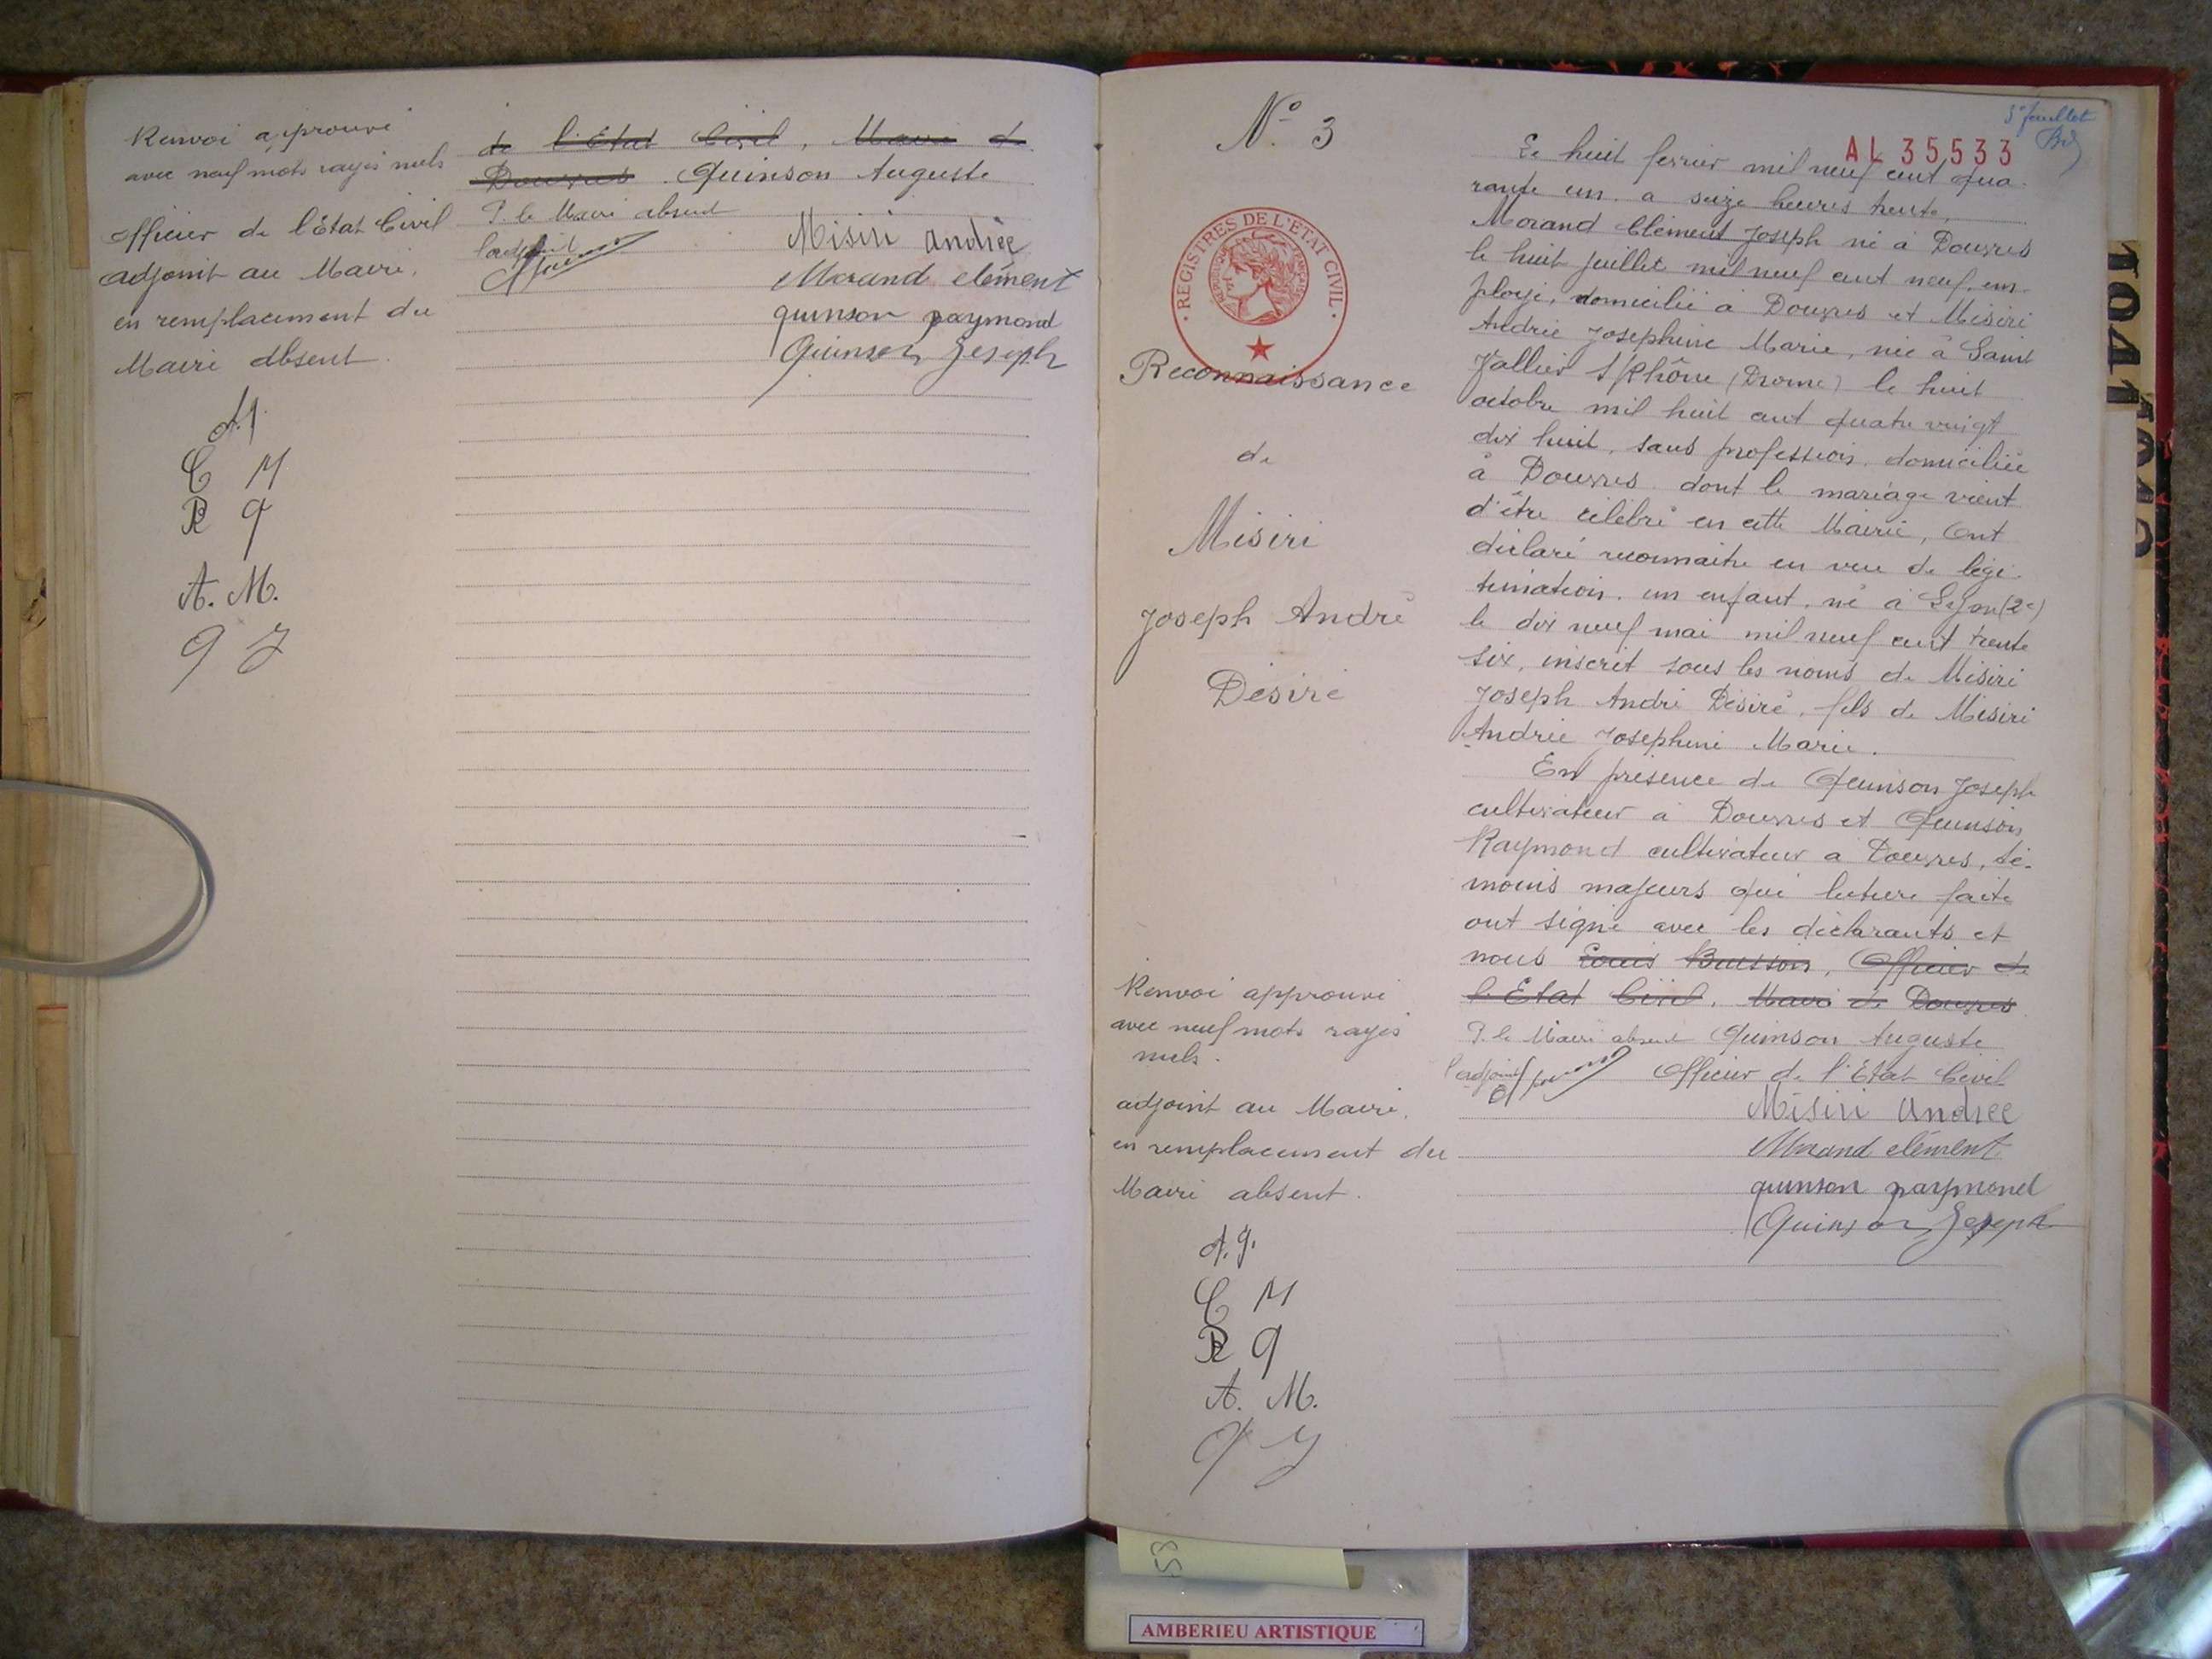 Renvoi approuvé
avec neuf mots rayés nuls
Officier de l'État Civil
adjoint au Maire,
en remplacement du
Maire absent.
A. M.
de l'État Civil, Maire de
Douvres Quinson Auguste
P. le Maire absent
l'adjoint
Misiri Andrée
Morand clément
quinson raymond
Quinson Joseph
C M
R q
A. M.
q J
N° 3
REGISTRES DE L'ETAT CIVIL
Reconnaissance
de
Misiri
Joseph André
Désiré
Renvoi approuvé
avec neuf mots rayés
nuls.
adjoint au Maire,
en remplacement du
Maire absent.
C M
R q
A. M.
q J
5e feuillet
AL 35533
Le huit fevrier mil neuf cent qua-
rante un, a seize heures trente,
Morand Clément Joseph né à Douvres
le huit juillet mil neuf cent neuf, em-
ployé, domicilié à Douvres et Misiri
Andrée Joséphine Marie, née à Saint
Vallier s/Rhône (Drome) le huit
octobre mil huit cent quatre vingt
dix huit, sans profession, domiciliée
à Douvres dont le mariage vient
d'être célébré en cette Mairie, Ont
déclaré reconnaitre en vue de légi-
timation, un enfant, né à Lyon (2e)
le dix neuf mai mil neuf cent trente
six, inscrit sous les noms de Misiri
Joseph André Désiré, fils de Misiri
Andrée Joséphine Marie.
En présence de Quinson Joseph
cultivateur à Douvres et Quinson
Raymond cultivateur à Douvres, té-
moins majeurs qui lecture faite
ont signé avec les déclarants et
nous Louis Buisson, Officier de
l'État Civil, Maire de Douvres
P. le Maire absent Quinson Auguste
l'adjoint Officier de l'État Civil
Misiri Andrée
Morand clément
quinson raymond
Quinson Joseph
1941
AMBERIEU ARTISTIQUE